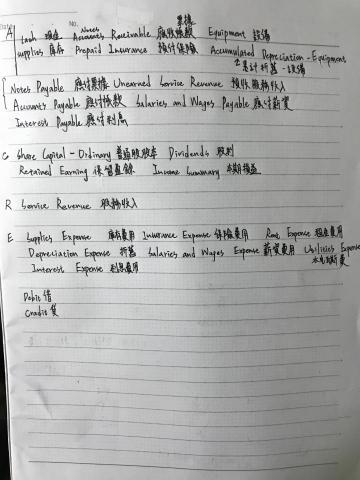 Date No.
Notes 票據
A Cash 現金 Accounts Receivable 應收帳款 Equipment 設備
Supplies 庫存 Prepaid Insurance 預付保險 Accumulated Depreciation - Equipment
累計折舊 - 設備
Notes Payable 應付票據 Unearned Service Revenue 預收服務收入
Accounts Payable 應付帳款 Salaries and Wages Payable 應付薪資
Interest Payable 應付利息
Share Capital - Ordinary 普通股股本 Dividends 股利
Retained Earning 保留盈餘 Income Summary 本期損益
R Service Revenue 服務收入
E Supplies Expense 庫存費用 Insurance Expense 保險費用 Rent Expense 租金費用
Depreciation Expense 折舊 Salaries and Wages Expense 薪資費用 Utilities Expense
Interest Expense 利息費用 水電瓦斯費
Debit 借
Credit 貸